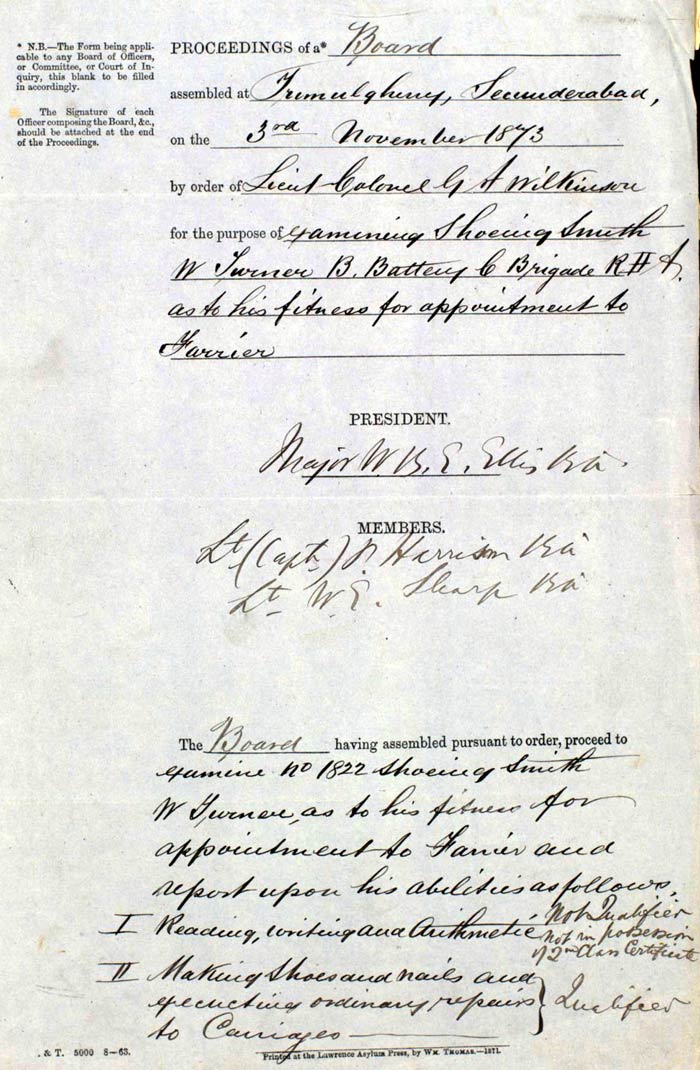 * N.B.—The Form being appli-
cable to any Board of Officers,
or Committee, or Court of In-
quiry, this blank to be filled
in accordingly.
The Signature of each
Officer composing the Board, &c.,
should be attached at the end
of the Proceedings.
PROCEEDINGS of a* Board
assembled at Trimulgherry, Secunderabad,
on the 3rd November 1873
by order of Lieut Colonel G A Wilkinson
for the purpose of examining Shoeing Smith
W Turner B. Battery C Brigade R H A.
as to his fitness for appointment to
Farrier
PRESIDENT.
Major W. B. E. Ellis RA.
MEMBERS.
Lt (Capt) Harrison RA
Lt W. E. Sharp RA
The Board having assembled pursuant to order, proceed to
examine No 1822 Shoeing Smith
W Turner, as to his fitness for
appointment to Farrier and
report upon his abilities as follows,
I Reading, writing and Arithmetic
Not Qualified
Not in possession
of 2nd Class Certificate
II Making Shoes and nails and
executing ordinary repairs
to Carriages
Qualified
. & T. 5000 8—63.
Printed at the Lawrence Asylum Press, by WM. THOMAS.—1871.